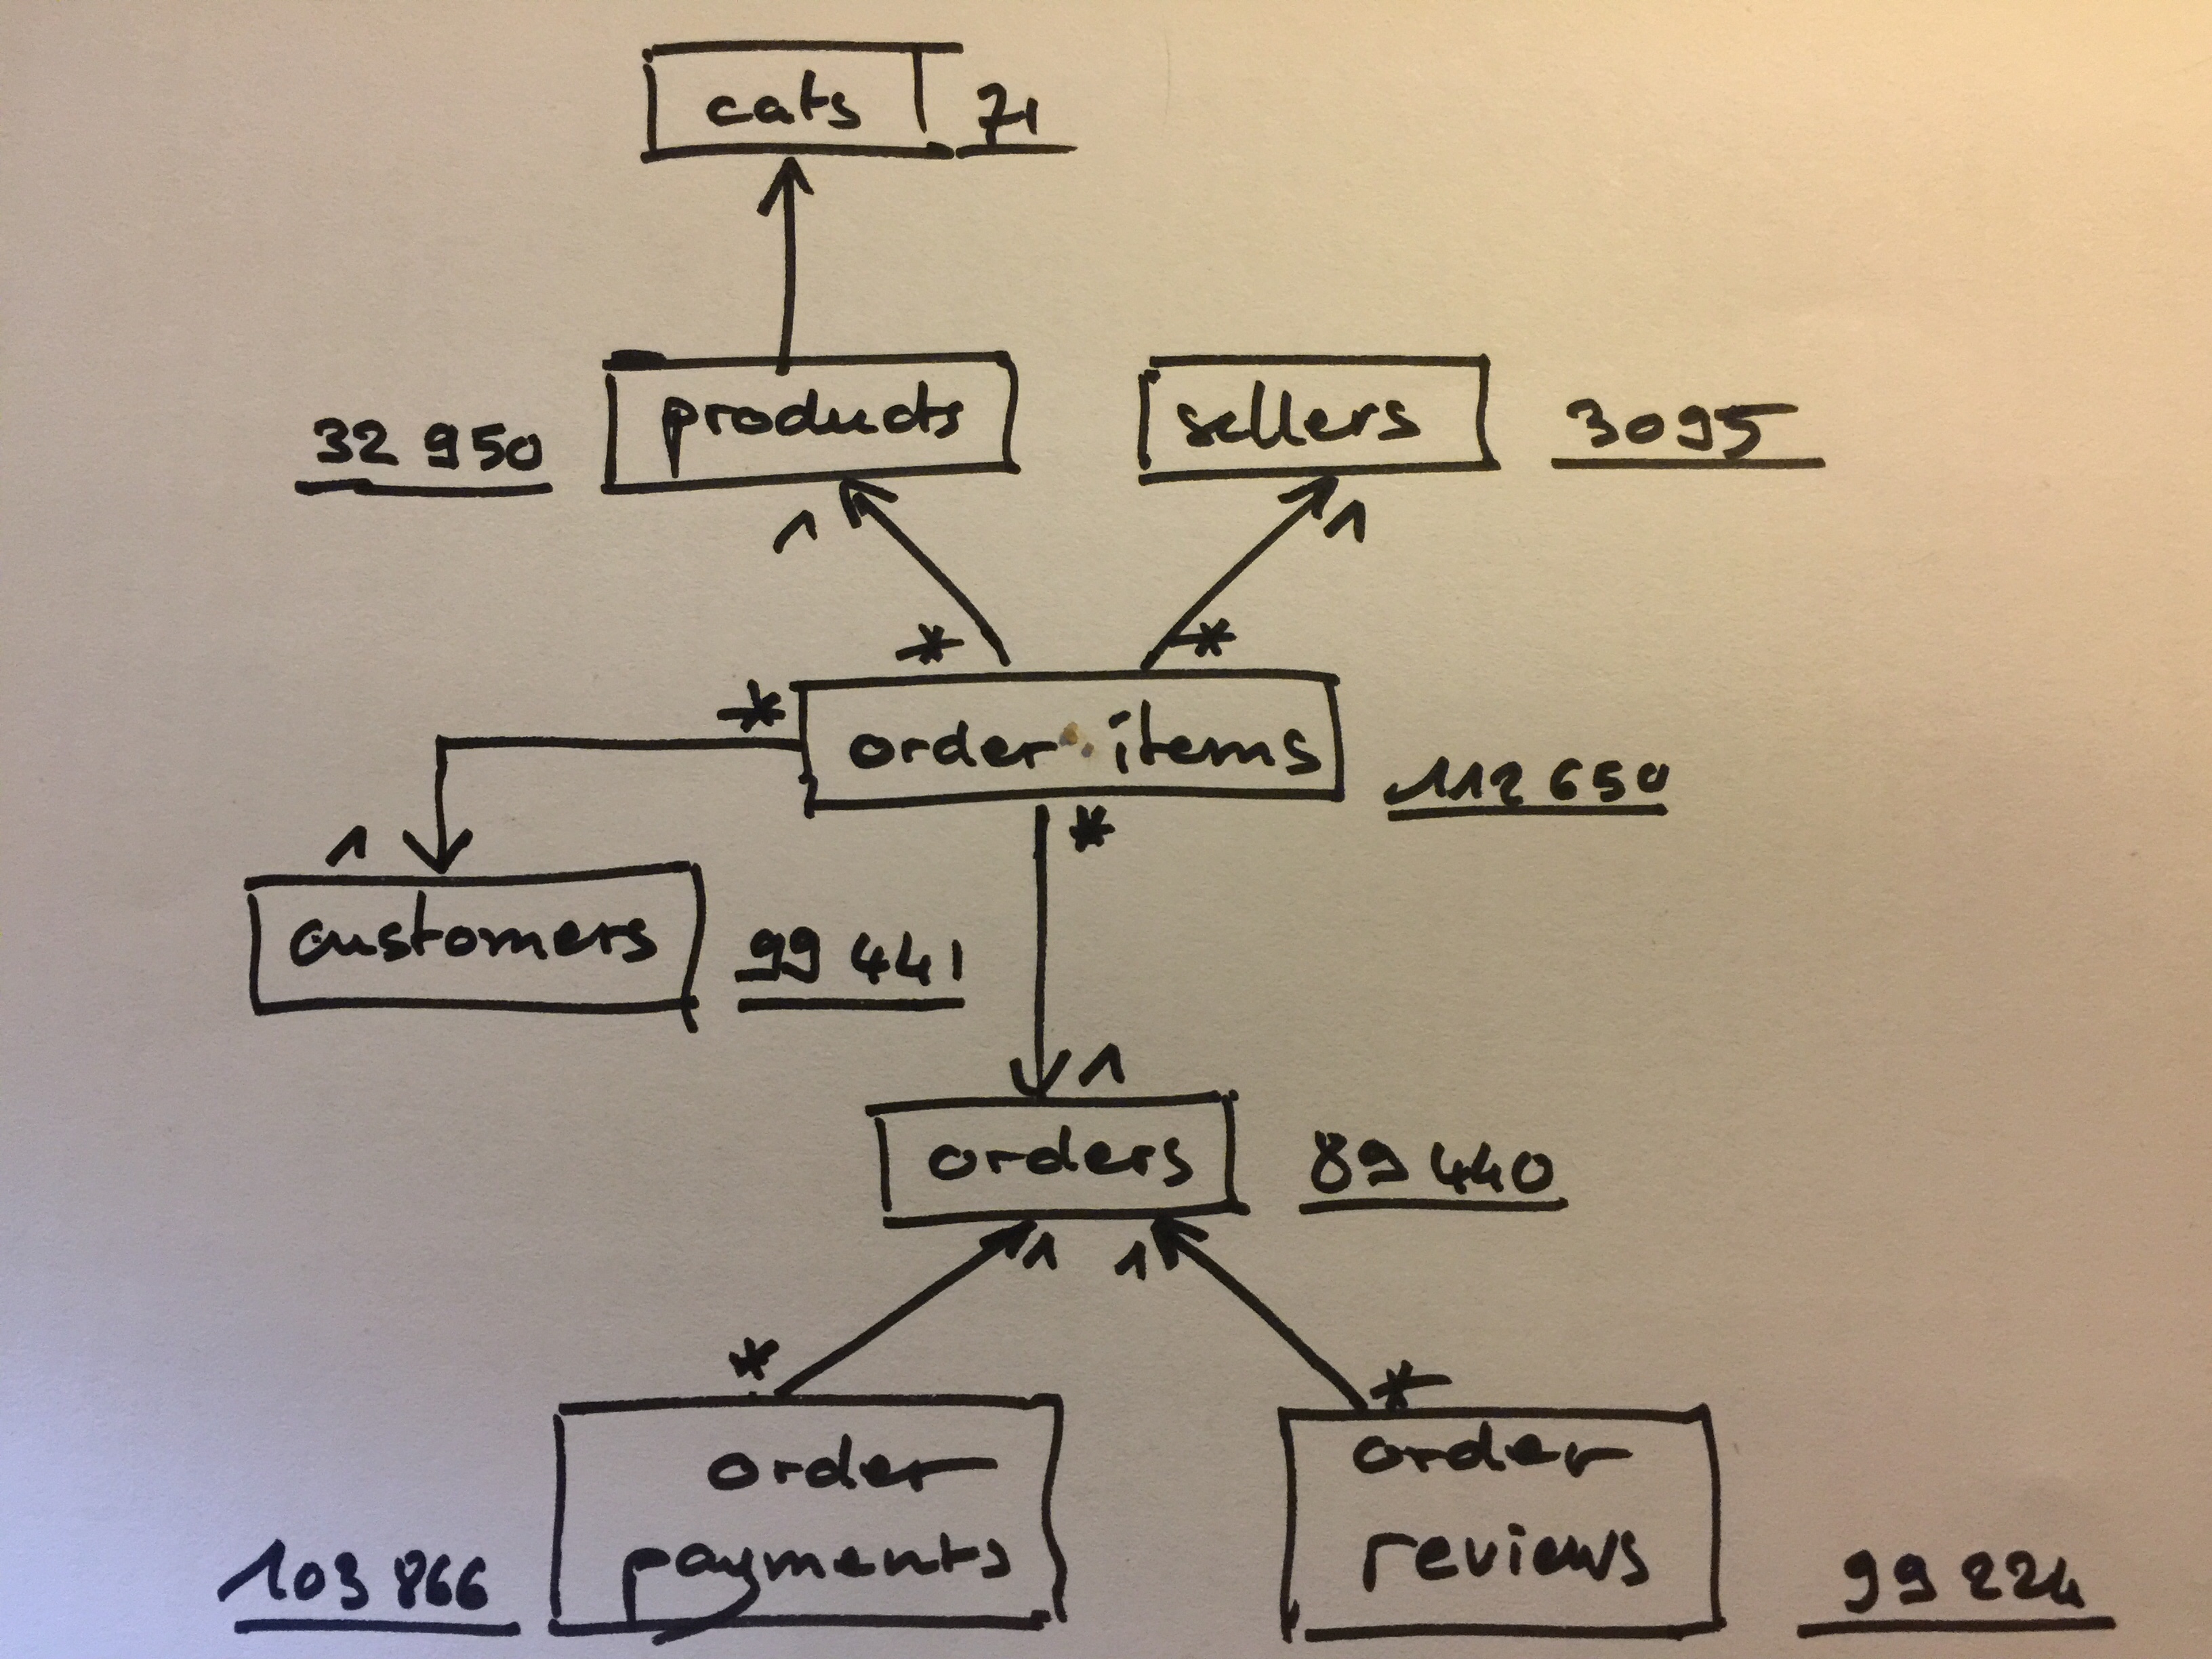 cats 71
32 950 products sellers 3095
1 1
* *
* order items 112 650
*
1
customers 99 441
1
orders 89 440
1 1
* *
order
payments
103 866
order
reviews
99 224